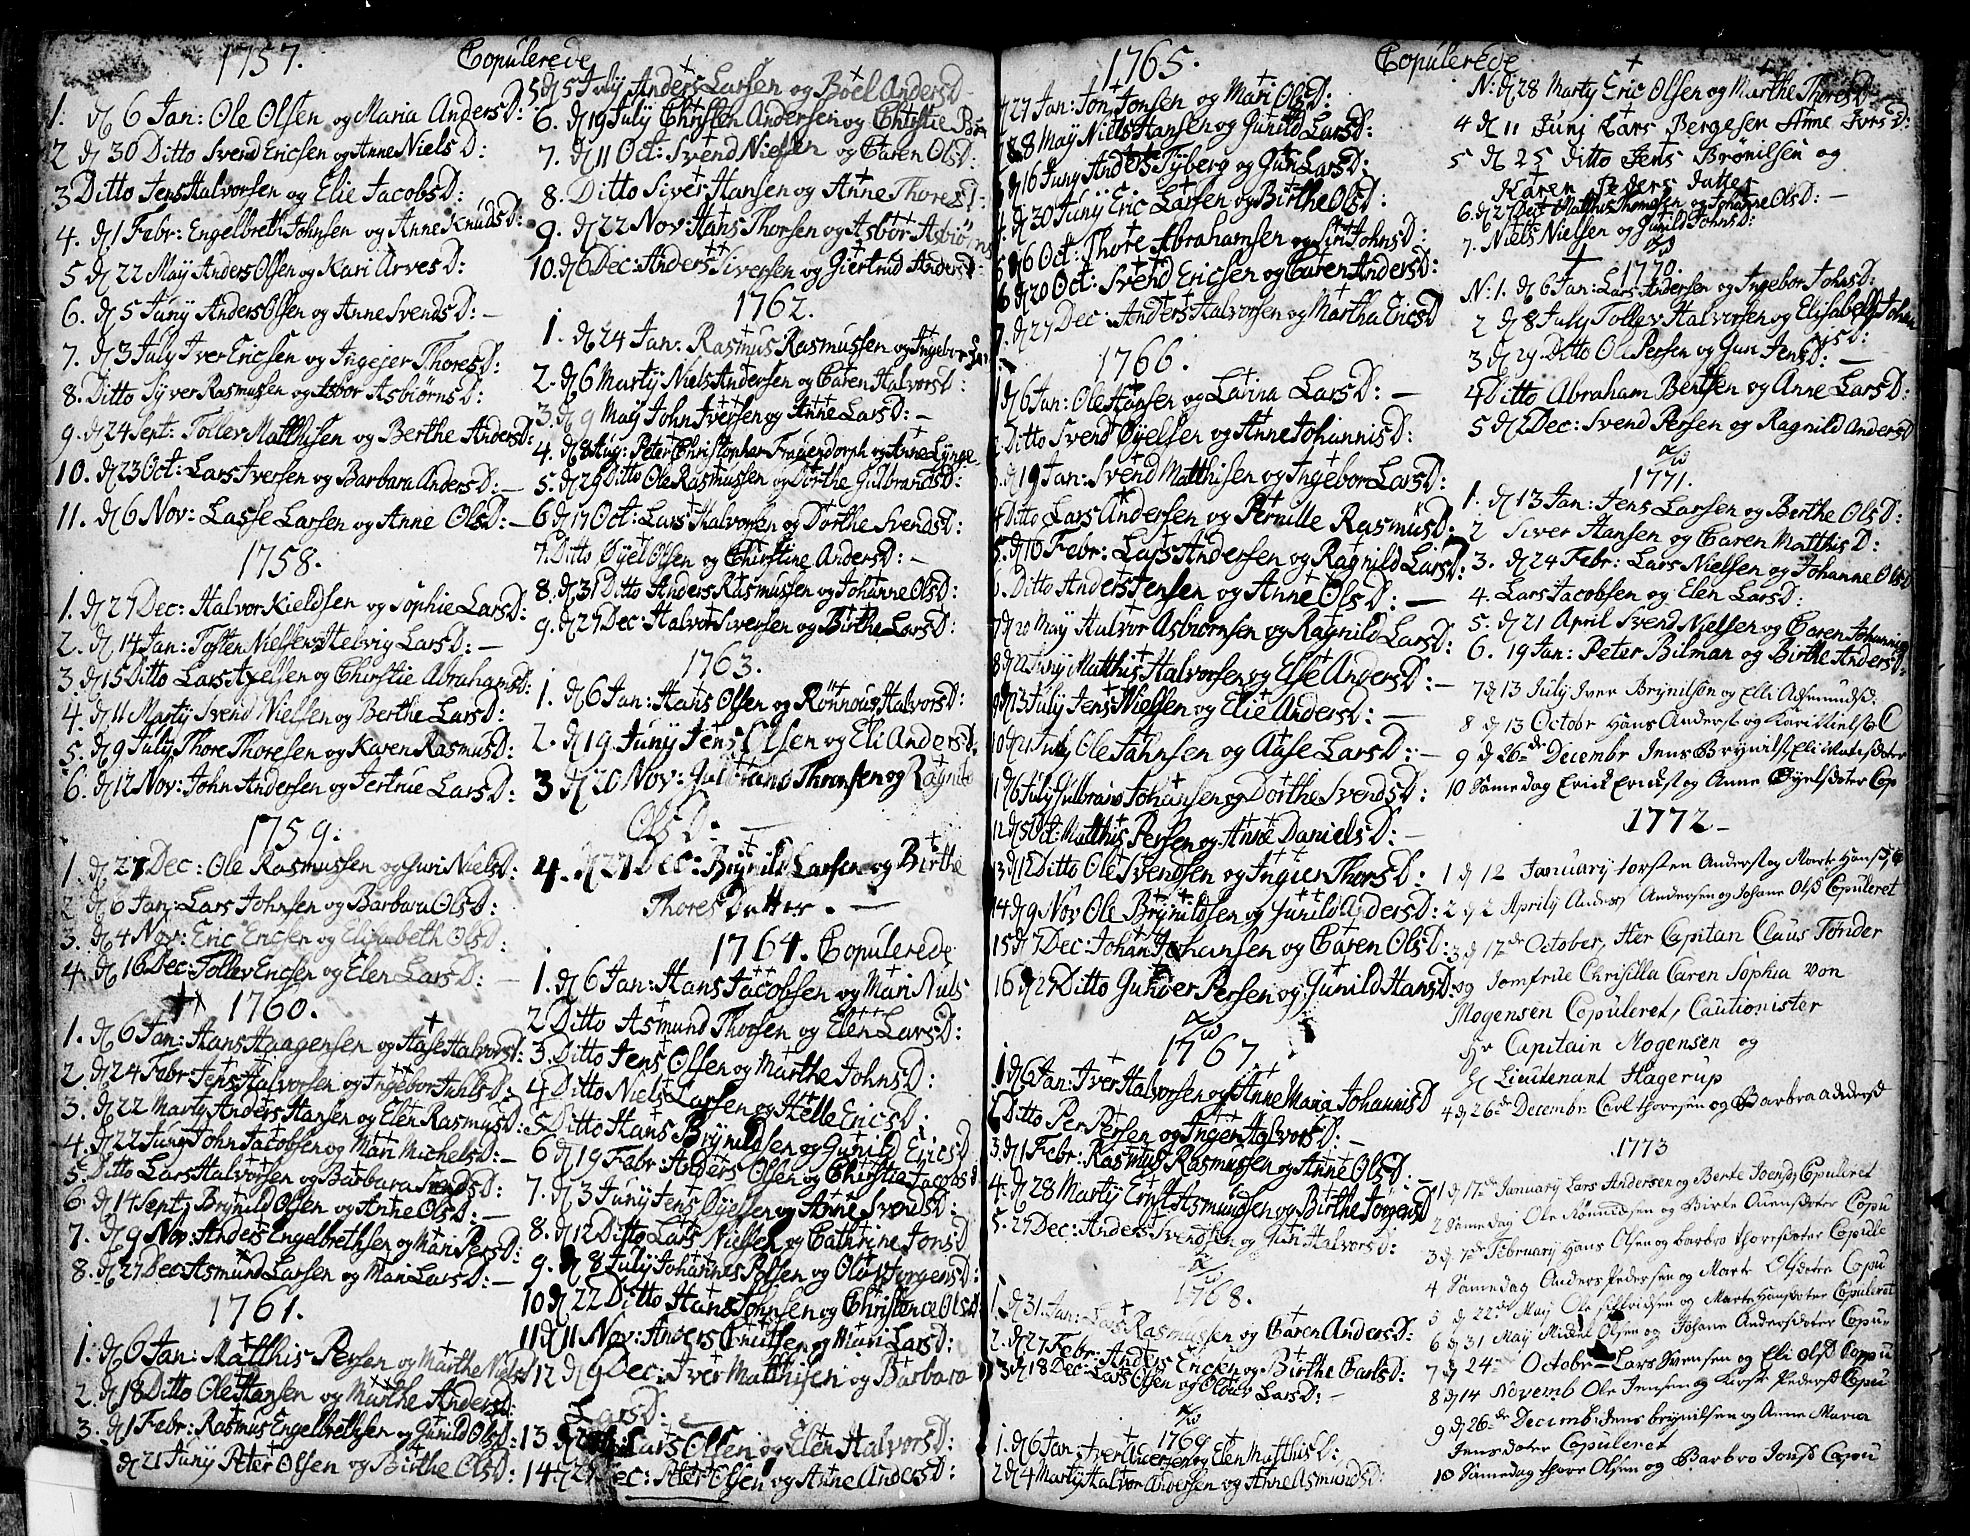 1757. Copulerede
1. dj 6 Jan: Ole Olsen og Maria AndersD:
2 dj 30 Ditto Svend Ericsen og Anne NielsD:
3 Ditto Jens Halvorsen og Elie JacobsD:
4. dj 1 Febr: Engelbreth Johnsen og Anne KnudsD:
5 dj 22 Maij Anders Olsen og Kari ArvesD:
6. dj 5 Junij Anders Olsen og Anne SvendsD: —
7. dj 3 July Iver Ericsen og Ingejer ThoresD:
8. Ditto Syver Rasmussen og Asbor AsbiørnsD:
9. dj 24 Sept: Tollev Matthisen og Berthe AndersD:
10. dj 23 Oct: Lars Iversen og Barbara AndersD: —
11. dj 6 Nov: Lasse Larsen og Anne OlsD: —
1758.
1. dj 27 Dec: Halvor Kieldsen og Sophie LarsD:
2. dj 14 Jan: Tosten Nielsen Helvig LarsD: —
3. dj 15 Ditto Lars Axelsen og Chirstie AbrahamsD:
4. dj 11 Martij Svend Nielsen og Berthe LarsD:
5. dj 9 July Thore Thoresen og Karen RasmusD:
6. dj 12 Nov: John Andersen og Jertrue LarsD:
1759.
1. dj 27 Dec: Ole Rasmussen og Guri NielsD:
2 dj 6 Jan: Lars Johnsen og Barbara OlsD:
3. dj 4 Nov: Eric Ericsen og Elisabeth OlsD:
4. dj 16 Dec: Tollev Ericsen og Elen LarsD: —
1760.
1. dj 6 Jan: Hans Haagensen og Aase HalvorsD:
2. dj 24 Febr Jens Halvorsen og Ingebor
3. dj 22 Martij Anders Hansen og Elen RasmusD:
4. dj 22 Junij John Jacobsen og Mari MichelsD: —
5. Ditto Lars Halvorsen og Barbara SvendsD:
6. dj 14 Sept: Brynild Olsen og Anne OlsD: —
7. dj 9 Nov: Anders Engelbrethsen og Mari PersD:
8. dj 27 Dec Asmund Larsen og Mari LarsD: —
1761.
1. dj 6 Jan: Matthis Persen og Marthe Niels
2. dj 18 Ditto Ole Hansen og Marthe AndersD:
3. dj 1 Febr: Rasmus Engelbrethsen og Gunild OlsD:
dj 21 Junij Peter Olsen og Birthe OlsD:
5 dj 5 July Anders Larsen og Boel AndersD
6. dj 19 July Christen Andersen og Chirstie
7. dj 11 Oct: Svend Nielsen og Caren OlsD:
8. Ditto Siver Hansen og Anne ThoresD:
9. dj 22 Nov: Hans Thorsen og Asbor Asbiørns
10. dj 6 Dec: Anders Siversen og Giertrud AndersD:
1762.
1. dj 24 Jan: Rasmus Rasmussen og Ingebor
2. dj 6 Martij Niels Andersen og Caren HalvorsD:
3. dj 9 Maij John Iversen og Anne LarsD: —
4. dj 8 Aug: Peter Christopher Frauendorph og Anne Lynge
5. dj 29 Ditto Ole Rasmussen og Dorthe GulbrandsD:
6 dj 17 Oct: Lars Halvorsen og Dorthe SvendsD:
7. Ditto Øyel Olsen og Chirstine AndersD: —
8. dj 31 Ditto Anders Rasmussen og Johanne OlsD:
9. dj 27 Dec: Halvor Siversen og Birthe LarsD:
1763.
1. dj 6 Jan: Hans Olsen og Rønnous HalvorsD:
2. dj 19 Junij Jens Olsen og Eli AndersD.
3 dj 20 Nov: Gulbrand Thronsen og Ragnild
OlsD. —
4. dj 27 Dec: Brynild Larsen og Birthe
Thores Datter. —
1764. Copulerede
1. dj 6 Jan: Hans Jacobsen og Mari Niels
2 Ditto Asmund Thorsen og Elen LarsD:
3. Ditto Jens Olsen og Marthe JohnsD:
4 Ditto Niels Larsen og Helle EricsD:
5 Ditto Hans Brynildsen og Gunild EricsD
6 dj 19 Febr: Anders Olsen og Chirstie JacobsD
7. dj 3 Junij Jens Øyelsen og Anne SvendsD:
8. dj 12 Ditto Lars Nielsen og Cathrine JonsD
9. dj 8 July Johannes Polsen og Olou JorgensD:
10 dj 22 Ditto Hans Johnsen og Christence OlsD:
11 dj 11 Nov: Anders Cnutsen og Mari LarsD:
12 dj 9 Dec: Iver Matthisen og Barbara
LarsD: —
13 Lars Olsen og Elen HalvorsD:
14 dj 27 Dec: Peter Olsen og Anne AndersD:
1765. Copulerede
dj 27 Jan: Jon Jonsen og Mari OlsD:
8 May Niels Hansen og Gunild LarsD:
dj 16 Junij Anders Tyberg og Guri LarsD:
dj 30 Junij Eric Larsen og Birthe OlsD:
dj 6 Oct: Thore Abrahamsen og Siri JohnsD:
6 dj 20 Oct: Svend Ericsen og Caren AndersD:
7. dj 27 Dec: Anders Halvorsen og Martha EricsD
1766.
dj 6 Jan: Ole Hansen og Larina LarsD: —
Ditto Svend Øyelsen og Anne JohannisD:
dj 19 Jan: Svend Matthisen og Ingebor LarsD:
4 Ditto Lars Andersen og Pernille RasmusD:
5. dj 10 Febr: Lars Andersen og Ragnild LarsD:
Ditto Anders Jensen og Anne OlsD: —
7 dj 20 May Halvor Asbiørnsen og Ragnild LarsD:
8 dj 22 Junij Matthis Halvorsen og Else AndersD: —
9 dj 13 July Jens Nielsen og Elie AndersD: —
10 dj 21 July Ole Jahnsen og Aase LarsD: —
Gulbrand Johansen og Dorthe SvendsD:
12 dj 5 Oct: Matthis Persen og Anne DanielsD: —
13 dj 12 Ditto Ole Svendsen og Ingier ThorsD:
14 dj 9 Nov Ole Brynildsen og Gunild AndersD:
15 dj 7 Dec: Johan Johansen og Caren OlsD:
16 dj 27 Ditto Gunder Persen og Gunild HansD:
1767.
1 dj 6 Jan: Iver Halvorsen og Anne Maria JohannisD
2 Ditto Per Persen og Inger HalvorsD: —
3. dj 1 Febr: Rasmus Rasmussen og Anne OlsD: —
4. dj 28 Martij Ernst Asmundsen og Birthe JørgensD
5. 27 Dec: Anders Svendsen og Guri HalvorsD:
1768.
1. dj 31. Jan: Lars Rasmussen og Caren AndersD:
2. dj 27 Febr: Anders Ericsen og Birthe CarlsD:
3 dj 18 Dec: Lars Olsen og Olour LarsD: —
1769.
1. dj 6 Jan: Iver og Elen MatthisD:
2 dj 4 Martij Halvor Andersen og Anne AsmundsD:
N: dj 28 Marty Eric Olsen og Marthe ThoresD
4 dj 11 Junj Lars Bergesen Anne IversD:
5 dj 25 Ditto Jens Brønilsen og
Karen Peders datter
6. dj 27 Dec: Matthis Thomesen og Johanne OlsD: —
7. Niels Nielsen og Gunild JohnsD:
1770.
N: 1. dj 6 Jan: Lars Andersen og Ingebor JohnsD:
2 dj 8 July Tollev Halvorsen og Elisabeth Johan
3 dj 29 Ditto Ole Persen og Guri JensD: —
4 Ditto Abraham Bertsen og Anne LarsD:
5 dj 2 Dec: Svend Persen og Ragnild AndersD
1771.
1. dj 13 Jan: Jens Larsen og Berthe OlsD:
2 Siver Hansen og Caren MatthisD:
3. dj 24 Febr: Lars Nielsen og Johanne OlsD
4. Lars Jacobsen og Elen LarsD:
5. dj 21 April Svend Nielsen og Caren Johannis
6. 19 Jan: Peter Bilman og Birthe AndersD:
7 dj 13 July Iver Brynilson og Elli Asmundsd.
8 dj 13 Octobr Hans Anderst og Kari Nielsd C
9 dj 26de Decembr Jens Brynilst Eli Matisdoter
10 Samedag Erick Erickst og Anne Øyelsdoter Cop
1772 —
1 dj 12 January torsten Anderst og Marte Hansd
2 dj 2 Aprily Anders Andersen og Johane Olsd Copuleret
3 dj 17de October, Her Capitan Claus Tønder
og Jomfrue Chrisilla Caren Sophia von
Mogensen Copuleret, Cautionister
Hr Capitain Mogensen og
Hr Lieutenant Hagerup
4 dj 26de Decembr Carl thoresen og Barbra andersd
1773
1 dj 17de January Lars Andersen og Berte Svendsd Copuleret
2 Samedag Ole Rønnildsen og Birte Auensdoter Copu
3 dj 7de February Hans Olsen og barbro thoresdoter Copule
4 Samedag Anders Pedersen og Marte Olsdoter Copu
5 dj 22de May Ole og Marte Hansdoter Copuleret
6 dj 31 May Mickel Olsen og Johane Andersdoter Copu
7 dj 24 Octobr Lars Svensen og Eli Olsd Coppu
8 dj 14 Novemb Ole Jensen og Kirste Pedersd Copu
9 dj 26de Decemb: Jens brynilsen og Anne Maria
Jensdoter Copuleret
10 Samedag thore Olsen og Barbro Jonsd Copu